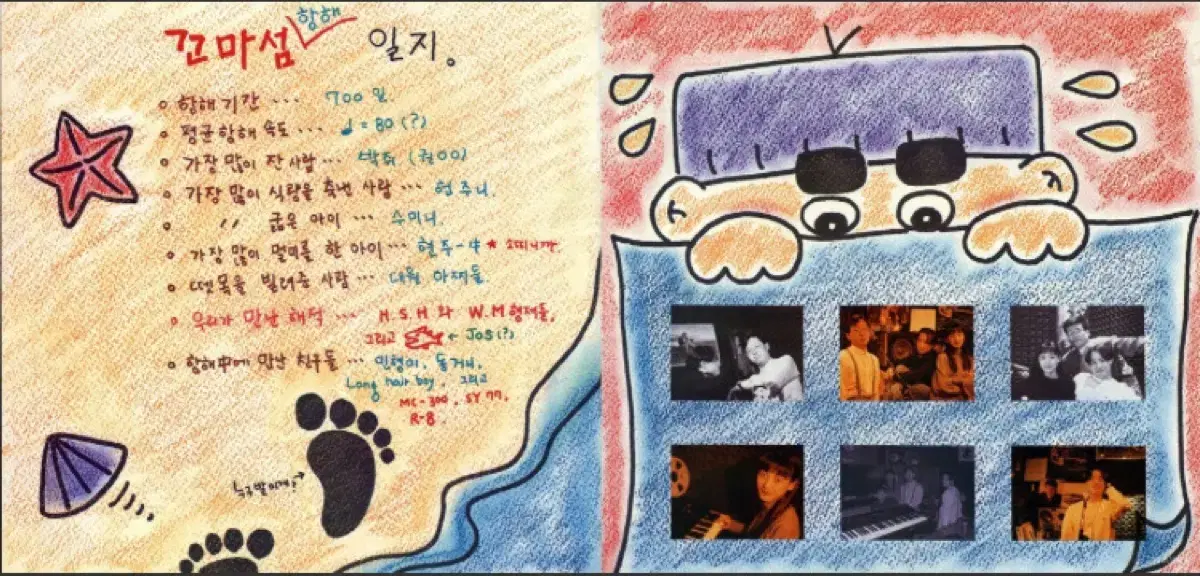 꼬마섬 항해 일지.
항해기간 ... 700일.
평균항해 속도 ... ♩=80(?)
가장 많이 잔 사람 ...
가장 많이 식량을 축낸 사람 ... 현주니.
〃 굶은 아이 ... 수미니.
가장 많이 멀미를 한 아이 ... 현주-中 * 소띠니까.
뗏목을 빌려준 사람 ... 대월 아재들.
우리가 만난 해적 ... H.S.H 와 W.M 형제들,
그리고 ← JOS(?)
항해中에 만난 친구들 ... 민형이, 동거니,
Long hair boy, 그리고
MC-300, SY77,
R-8.
누구발이게? →